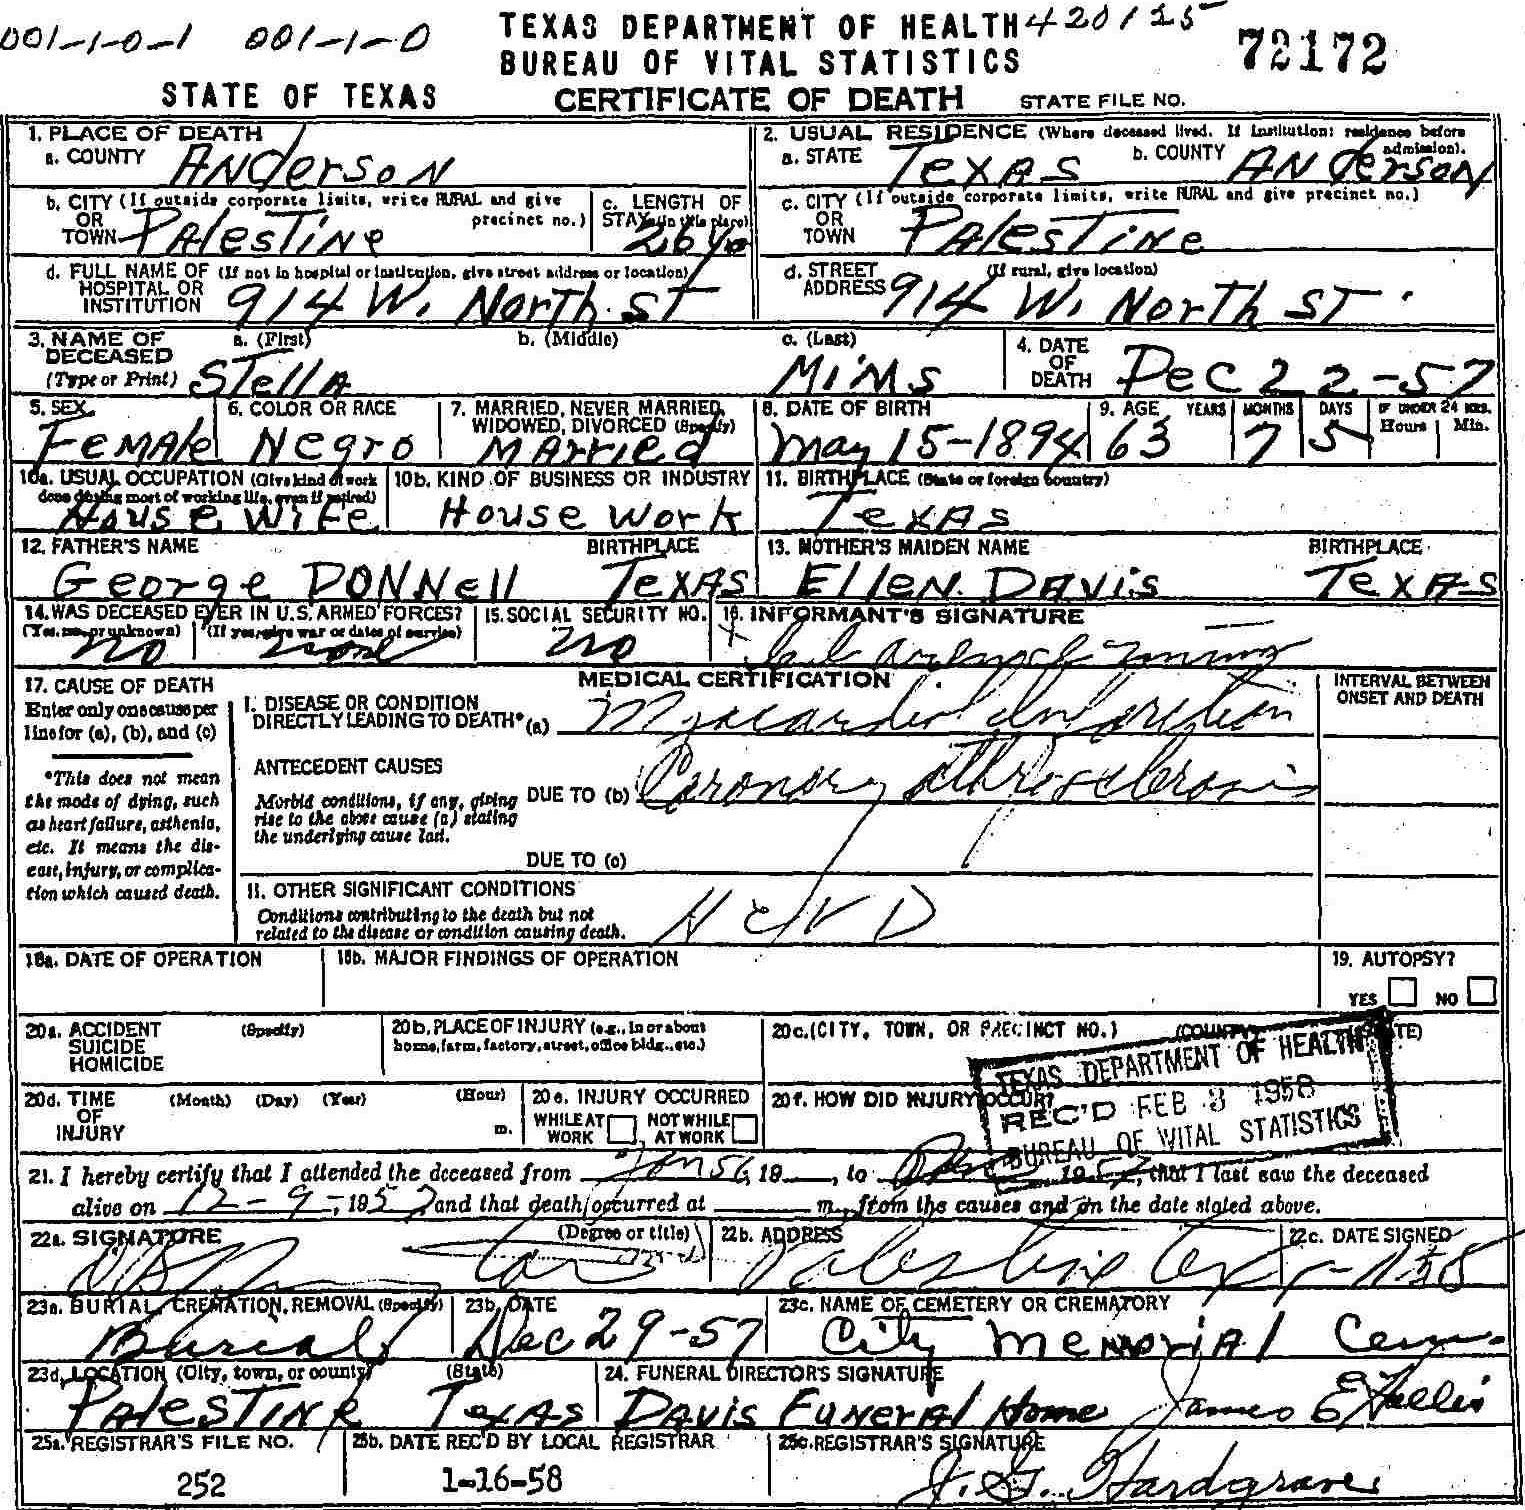 001-1-0-1 001-1-0 TEXAS DEPARTMENT OF HEALTH 420125
BUREAU OF VITAL STATISTICS 72172
STATE OF TEXAS CERTIFICATE OF DEATH STATE FILE NO.
1. PLACE OF DEATH
a. COUNTY Anderson
2. USUAL RESIDENCE (Where deceased lived. If institution: residence before admission).
a. STATE Texas b. COUNTY Anderson
b. CITY (If outside corporate limits, write RURAL and give precinct no.)
OR
TOWN Palestine
c. LENGTH OF STAY (in this place)
c. CITY (If outside corporate limits, write RURAL and give precinct no.)
OR
TOWN Palestine
d. FULL NAME OF (If not in hospital or institution, give street address or location)
HOSPITAL OR
INSTITUTION 914 W. North St
d. STREET (If rural, give location)
ADDRESS 914 W. North St.
3. NAME OF DECEASED (Type or Print)
a. (First) b. (Middle) c. (Last)
Stella Mims
4. DATE OF DEATH Dec 22-57
5. SEX Female
6. COLOR OR RACE Negro
7. MARRIED, NEVER MARRIED, WIDOWED, DIVORCED (Specify) Married
8. DATE OF BIRTH May 15-1894
9. AGE YEARS MONTHS DAYS IF UNDER 24 HRS. Hours Min.
63 7 5
10a. USUAL OCCUPATION (Give kind of work done during most of working life, even if retired)
House Wife
10b. KIND OF BUSINESS OR INDUSTRY
House Work
11. BIRTHPLACE (State or foreign country)
Texas
12. FATHER'S NAME BIRTHPLACE
George Donnell Texas
13. MOTHER'S MAIDEN NAME BIRTHPLACE
Ellen Davis Texas
14. WAS DECEASED EVER IN U.S. ARMED FORCES?
(Yes, no, or unknown) (If yes, give war or dates of service)
no none
15. SOCIAL SECURITY NO.
no
16. INFORMANT'S SIGNATURE
x
MEDICAL CERTIFICATION
17. CAUSE OF DEATH
Enter only one cause per
line for (a), (b), and (c)
*This does not mean
the mode of dying, such
as heart failure, asthenia,
etc. It means the dis-
ease, injury, or complica-
tion which caused death.
I. DISEASE OR CONDITION
DIRECTLY LEADING TO DEATH* (a) Myocardial Infarction
ANTECEDENT CAUSES
Morbid conditions, if any, giving
rise to the above cause (a) stating
the underlying cause last.
DUE TO (b) Coronary
DUE TO (c)
II. OTHER SIGNIFICANT CONDITIONS
Conditions contributing to the death but not
related to the disease or condition causing death.
H C V D
INTERVAL BETWEEN
ONSET AND DEATH
18a. DATE OF OPERATION
18b. MAJOR FINDINGS OF OPERATION
19. AUTOPSY?
YES NO
20a. ACCIDENT (Specify)
SUICIDE
HOMICIDE
20b. PLACE OF INJURY (e.g., in or about
home, farm, factory, street, office bldg., etc.)
20c. (CITY, TOWN, OR PRECINCT NO.) (COUNTY) (STATE)
20d. TIME (Month) (Day) (Year) (Hour)
OF
INJURY m.
20e. INJURY OCCURRED
WHILE AT WORK NOT WHILE AT WORK
20f. HOW DID INJURY OCCUR?
TEXAS DEPARTMENT OF HEALTH
REC'D FEB 3 1958
BUREAU OF VITAL STATISTICS
21. I hereby certify that I attended the deceased from 19 , to 1957, that I last saw the deceased
alive on 12-9-, 1957 and that death occurred at m., from the causes and on the date stated above.
22a. SIGNATURE (Degree or title)
22b. ADDRESS
Palestine Tex
22c. DATE SIGNED
23a. BURIAL, CREMATION, REMOVAL (Specify)
Burial
23b. DATE
Dec 29-57
23c. NAME OF CEMETERY OR CREMATORY
City Memorial Cem.
23d. LOCATION (City, town, or county) (State)
Palestine Texas
24. FUNERAL DIRECTOR'S SIGNATURE
Davis Funeral Home James E
25a. REGISTRAR'S FILE NO.
252
25b. DATE REC'D BY LOCAL REGISTRAR
1-16-58
25c. REGISTRAR'S SIGNATURE
J. G. Hardgrave